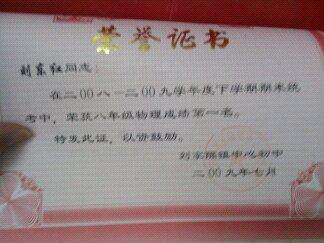 荣誉证书
刘东红同志:
在二00八—二00九学年度下学期期末统
考中,荣获八年级物理成绩第一名。
特发此证,以资鼓励。
刘家隔镇中心初中
二00九年七月